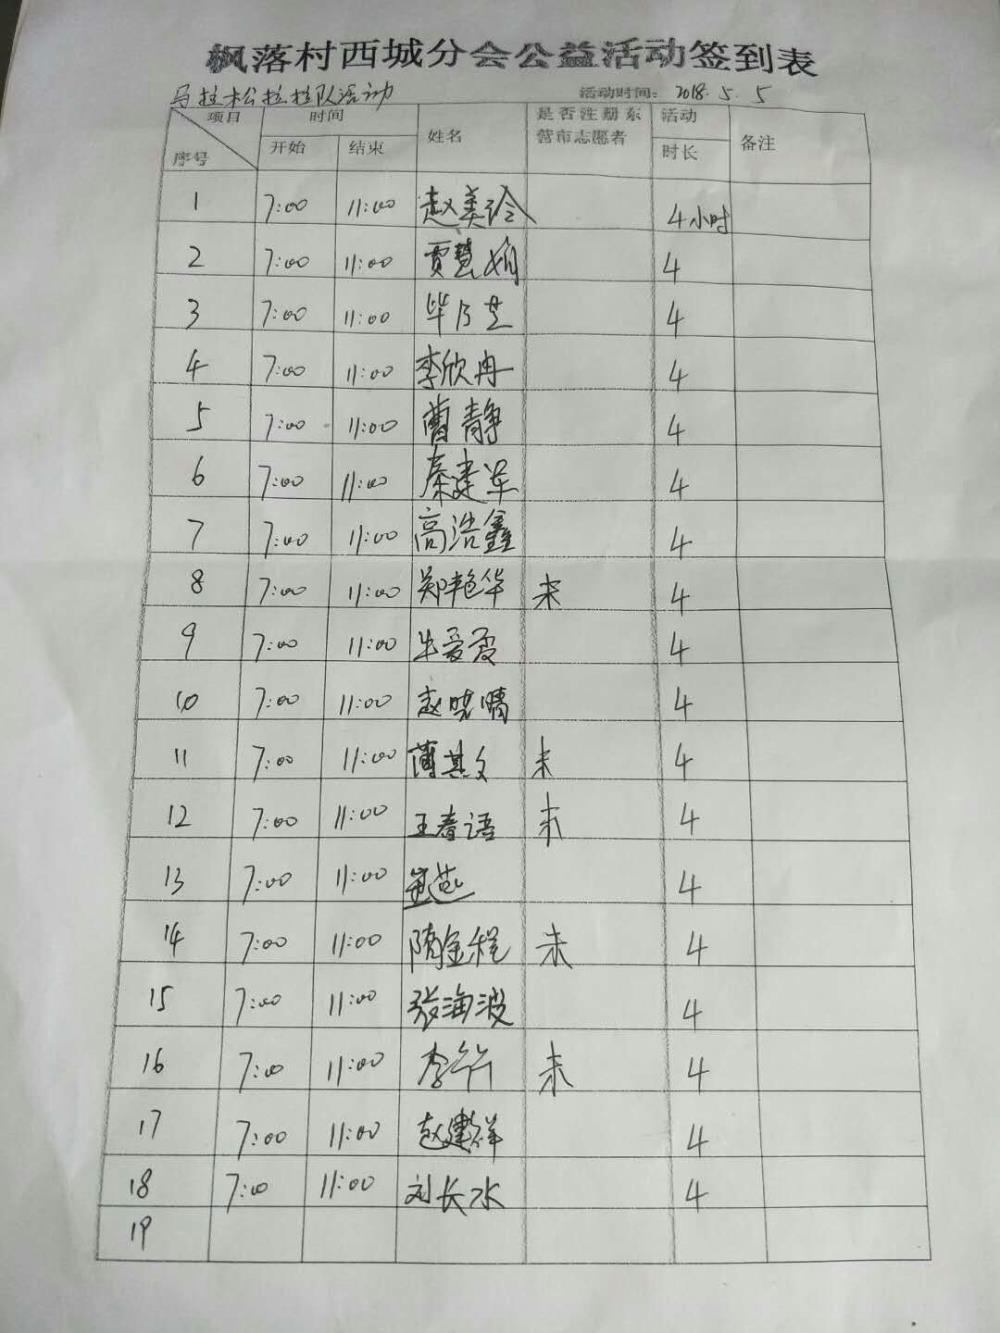 枫落村西城分会公益活动签到表
马拉松拉拉队活动 活动时间：2018.5.5
项目 时间 姓名 是否注册东营市志愿者 活动时长 备注
序号 开始 结束
1 7:00 11:00 赵美玲 4小时
2 7:00 11:00 贾慧娟 4
3 7:00 11:00 毕乃芝 4
4 7:00 11:00 李欣冉 4
5 7:00 11:00 曹静 4
6 7:00 11:00 秦建军 4
7 7:00 11:00 高浩鑫 4
8 7:00 11:00 郑艳华 未 4
9 7:00 11:00 牛爱霞 4
10 7:00 11:00 赵晓晴 4
11 7:00 11:00 薄其文 未 4
12 7:00 11:00 王春语 未 4
13 7:00 11:00 4
14 7:00 11:00 隋金程 未 4
15 7:00 11:00 张海波 4
16 7:00 11:00 李 未 4
17 7:00 11:00 赵建祥 4
18 7:00 11:00 刘长水 4
19